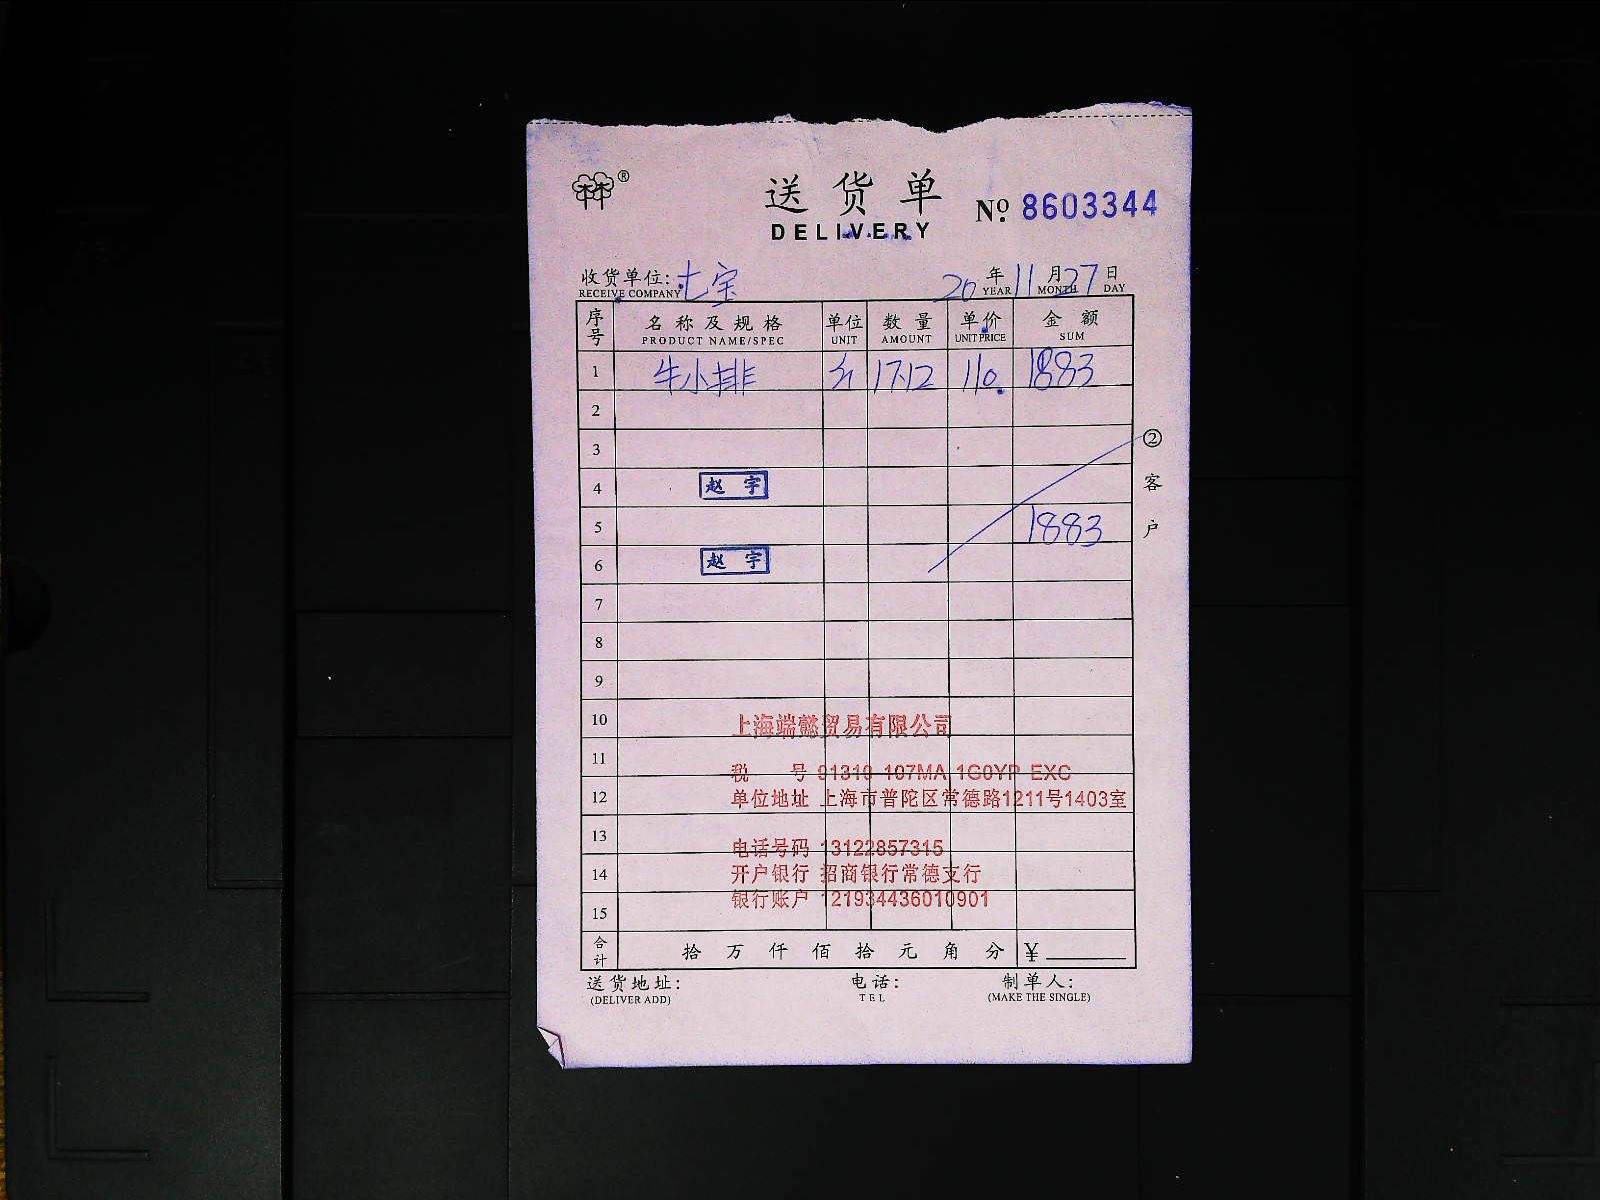 ®
送货单
DELIVERY
No. 8603344
收货单位: 七宝 20 年 11 月 27 日
RECEIVE COMPANY YEAR MONTH DAY
序号 名称及规格 单位 数量 单价 金额
PRODUCT NAME/SPEC UNIT AMOUNT UNIT PRICE SUM
1 牛小排 17.12 110. 1883
2
3
4 赵宇
5 1883
6 赵宇
7
8
9
10 上海端懿贸易有限公司
11 税 号 91310 107MA 1G0YP EXC
12 单位地址 上海市普陀区常德路1211号1403室
13 电话号码 13122857315
14 开户银行 招商银行常德支行
15 银行账户 121934436010901
合计 拾 万 仟 佰 拾 元 角 分 ¥
送货地址: 电话: 制单人:
(DELIVER ADD) TEL (MAKE THE SINGLE)
②客户